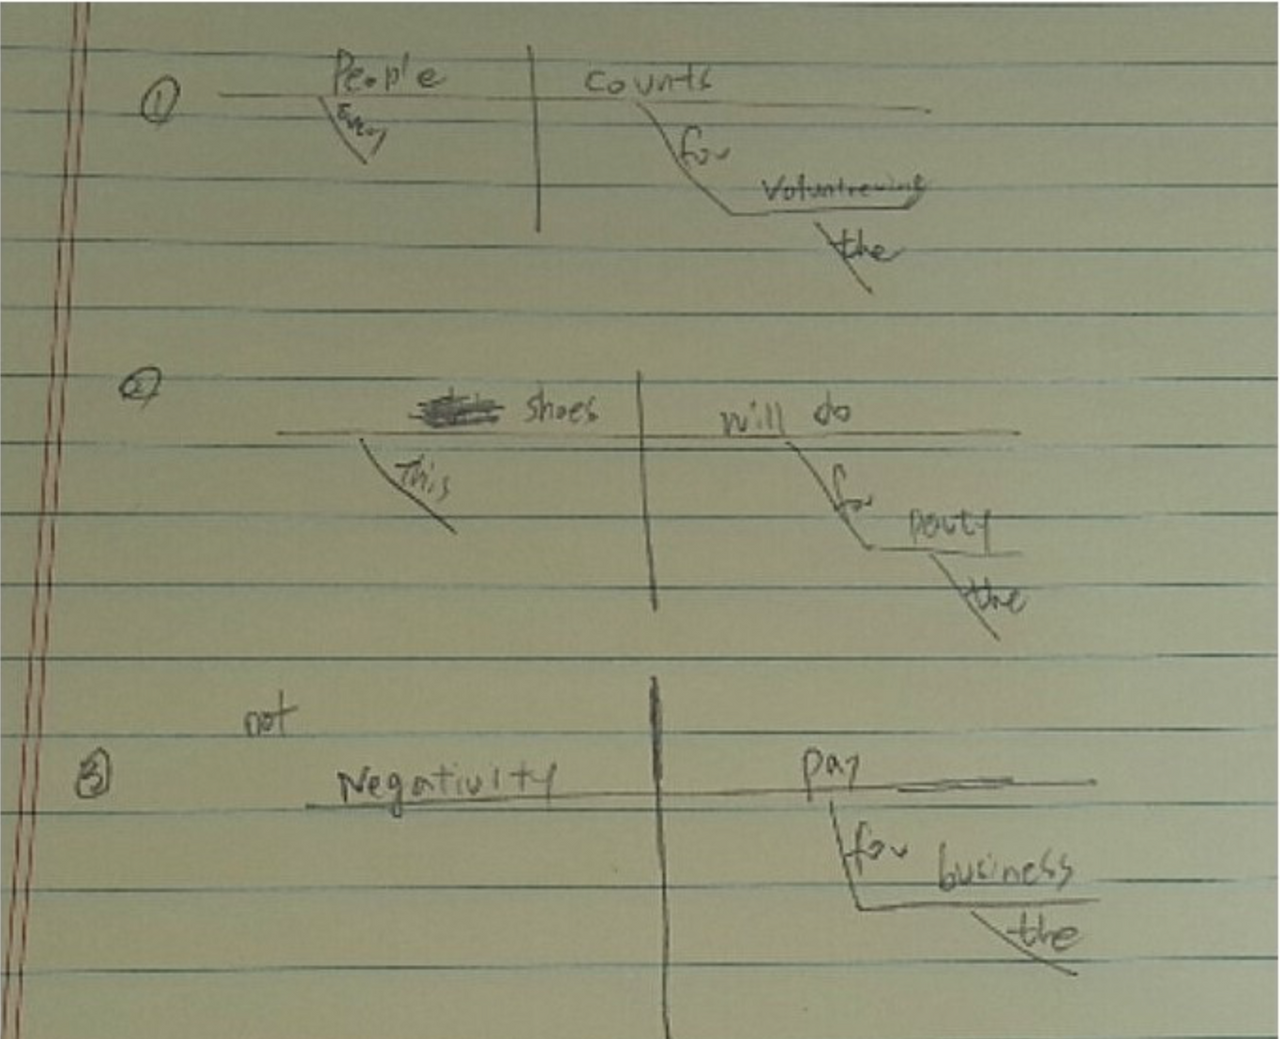 ① People counts
Every
for
Volunteering
the
② shoes will do
This
for
party
the
not
③ Negativity pay
for
business
the